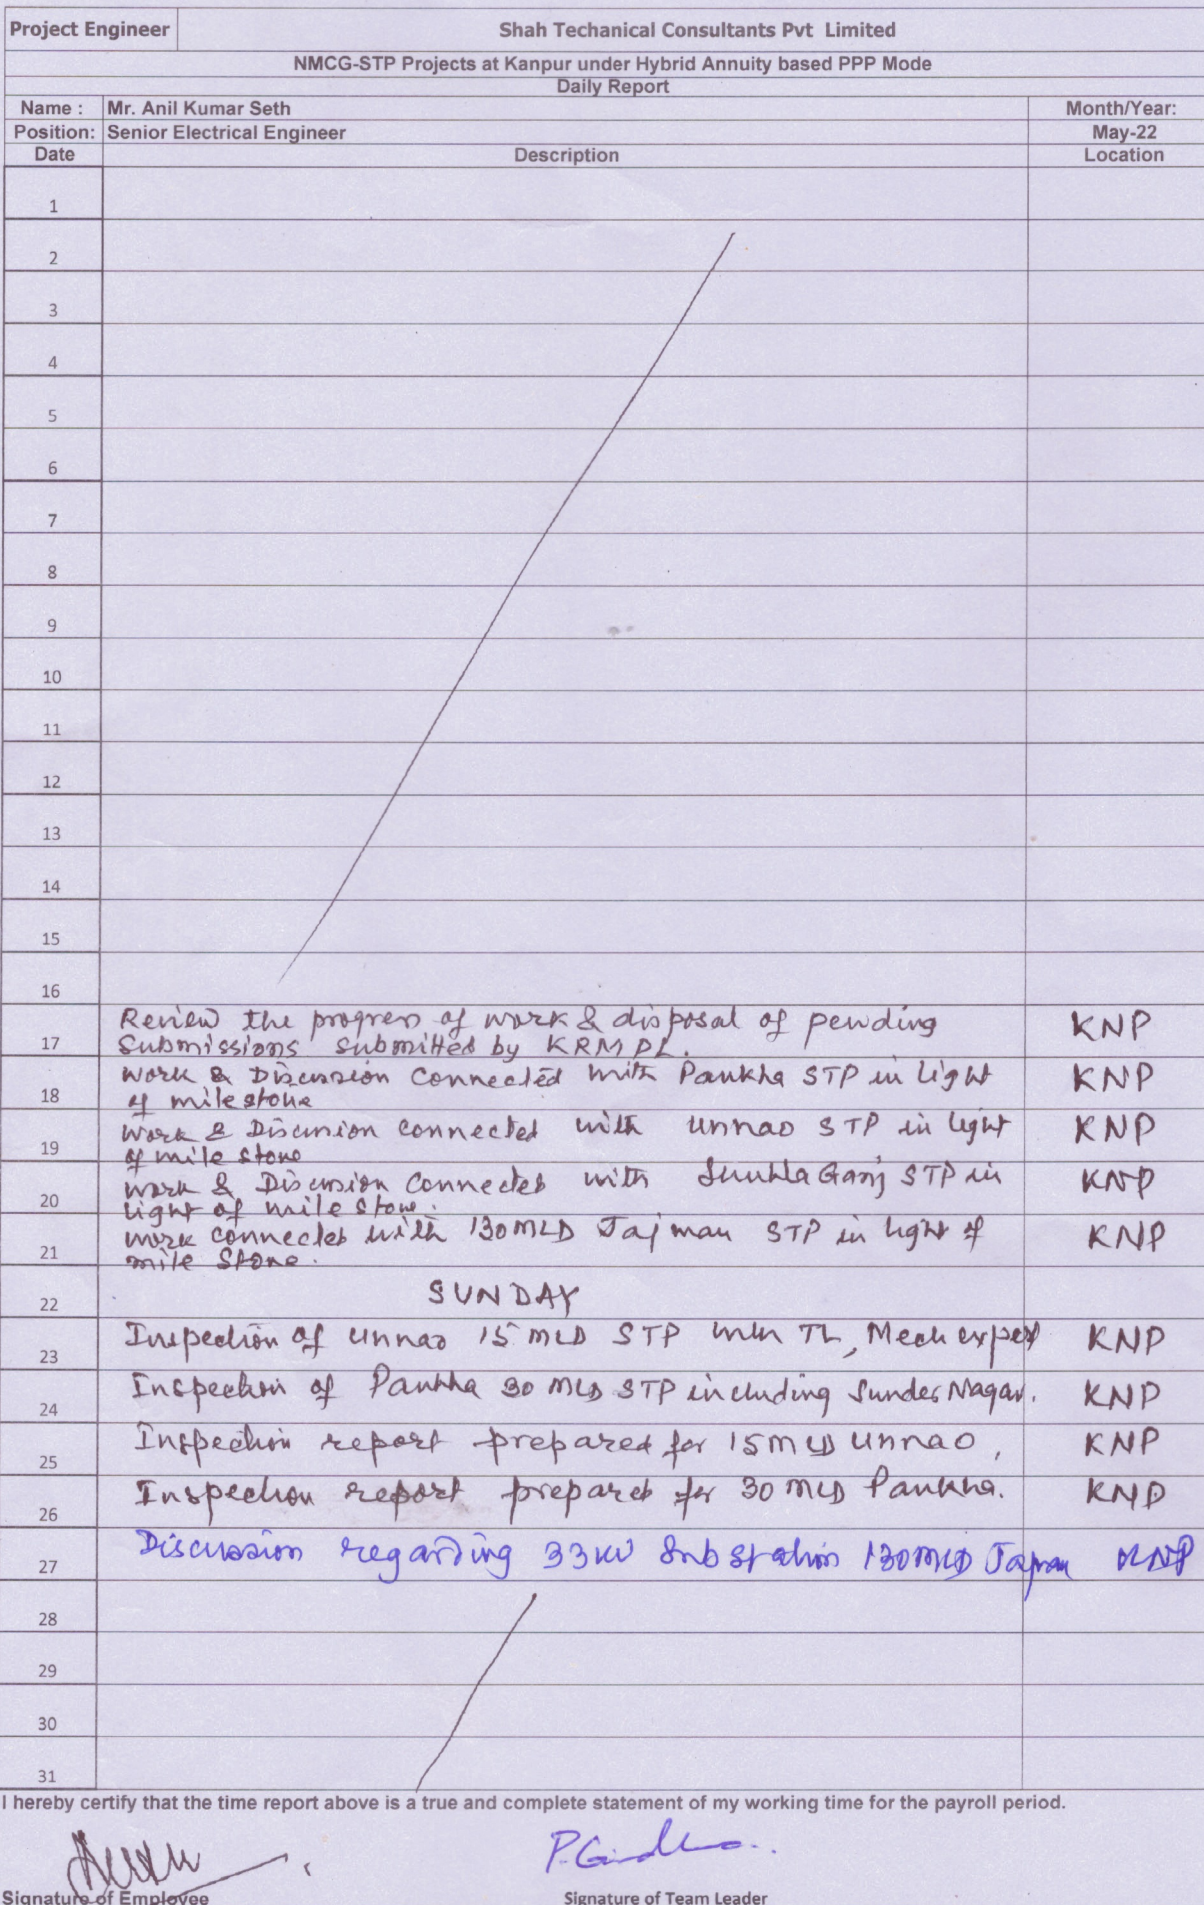 Project Engineer Shah Techanical Consultants Pvt Limited
NMCG-STP Projects at Kanpur under Hybrid Annuity based PPP Mode
Daily Report
Name : Mr. Anil Kumar Seth Month/Year:
Position: Senior Electrical Engineer May-22
Date Description Location
1
2
3
4
5
6
7
8
9
10
11
12
13
14
15
16
Review the progress of work & disposal of pending
17 submissions submitted by KRMPL. KNP
Work & Discussion connected with Pankha STP in light
18 of milestone KNP
Work & Discussion connected with Unnao STP in light
19 of mile stone KNP
Work & Discussion connected with Shukla Ganj STP in
20 light of mile stone. KNP
Work connected with 130 MLD Jajmau STP in light of
21 mile stone. KNP
22 SUNDAY
23 Inspection of Unnao 15 MLD STP with TL, Mech expert KNP
24 Inspection of Pankha 30 MLD STP including Sunder Nagar. KNP
25 Inspection report prepared for 15 MLD Unnao, KNP
26 Inspection report prepared for 30 MLD Pankha. KNP
27 Discussion regarding 33 KV Sub station 130 MLD Jajmau KNP
28
29
30
31
I hereby certify that the time report above is a true and complete statement of my working time for the payroll period.
Signature of Employee Signature of Team Leader